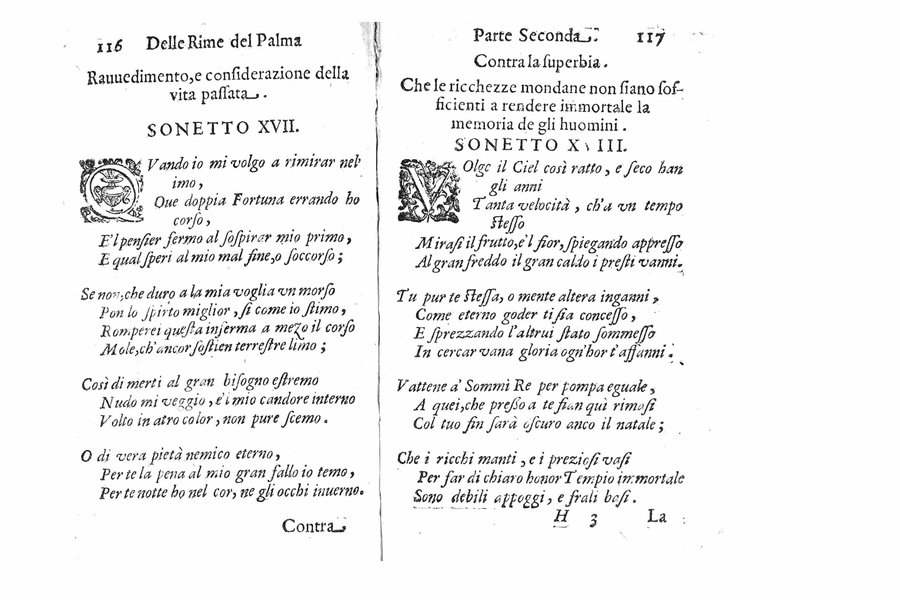 116 Delle Rime del Palma
Rauuedimento,e conſiderazione della
vita paſſata.
SONETTO XVII.
QVando io mi volgo a rimirar nel'
imo,
Oue doppia Fortuna errando ho
corſo,
E'l penſier fermo al ſoſpirar mio primo,
E qual ſperi al mio mal fine,o ſoccorſo;
Se non,che duro a la mia voglia vn morſo
Pon lo ſpirto miglior, ſi come io ſtimo,
Romperei queſta inferma a mezo il corſo
Mole,ch'ancor ſoſtien terreſtre limo;
Così di merti al gran biſogno eſtremo
Nudo mi veggio, e'l mio candore interno
Volto in atro color, non pure ſcemo.
O di vera pietà nemico eterno,
Per te la pena al mio gran fallo io temo,
Per te notte ho nel cor, ne gli occhi inuerno.
Contra
Parte Seconda. 117
Contra la ſuperbia.
Che le ricchezze mondane non ſiano ſof-
ficienti a rendere immortale la
memoria de gli huomini.
SONETTO XVIII.
VOlge il Ciel così ratto, e ſeco han
gli anni
Tanta velocità, ch'a vn tempo
ſteſſo
Miraſi il frutto,e'l fior,ſpiegando appreſſo
Al gran freddo il gran caldo i preſti vanni.
Tu pur te ſteſſa, o mente altera inganni,
Come eterno goder ti ſia conceſſo,
E ſprezzando l'altrui ſtato ſommeſſo
In cercar vana gloria ogn'hor t'affanni.
Vattene a' Sommi Re per pompa eguale,
A quei,che preſſo a te ſian quì rimaſi
Col tuo fin ſarà oſcuro anco il natale;
Che i ricchi manti, e i prezioſi vaſi
Per far di chiaro honor Tempio immortale
Sono debili appoggi, e frali baſi.
H 3 La